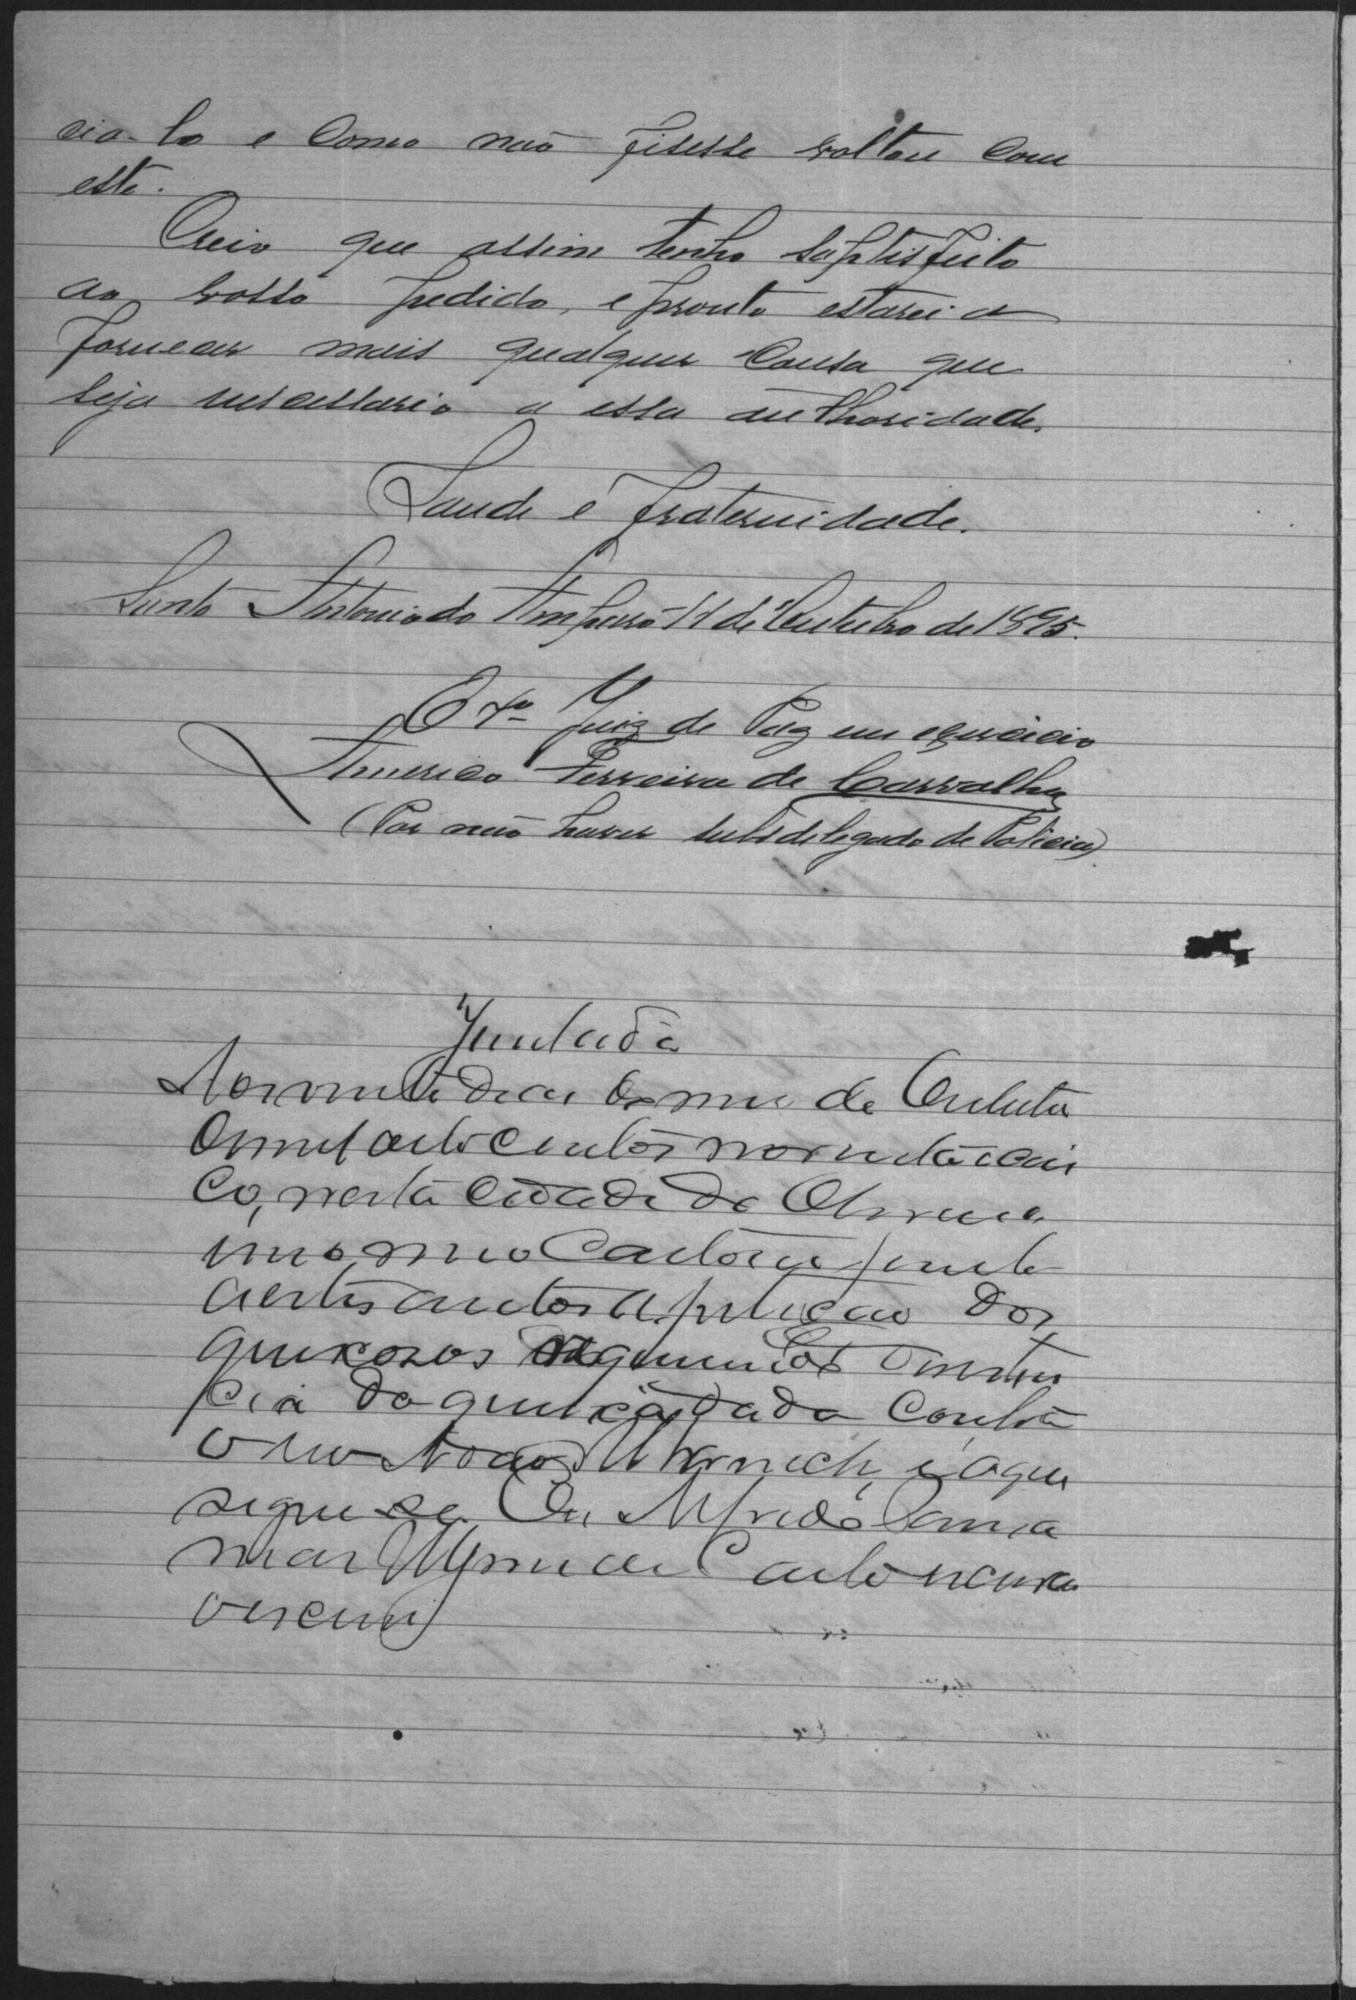 cia-lo e como não fisesse voltou com
este.
Creio que assim tenho saptisfeito
ao vosso pedido, e prompto estarei a
fornecer mais qualquer causa que
seja nescessario a essa authoridade.
Saude e fraternidade.
Santo Antonio do Amparo 11 de Outubro de 1895.
O 1º Juiz de Paz em exercicio
Americo Ferreira de Carvalho
(Por não haver subdelegado de Policia)
Juntada
Aos vinte dias do mes de Outubro
de mil oito centos noventa e cin
co, nesta cidade de Oliveira
em o meo Cartorio junto
a estes autos a petição dos
queixosos
da queixa dada contra
o reo João e a que
segue se. Eu Alfredo
escrivão
o escrevi